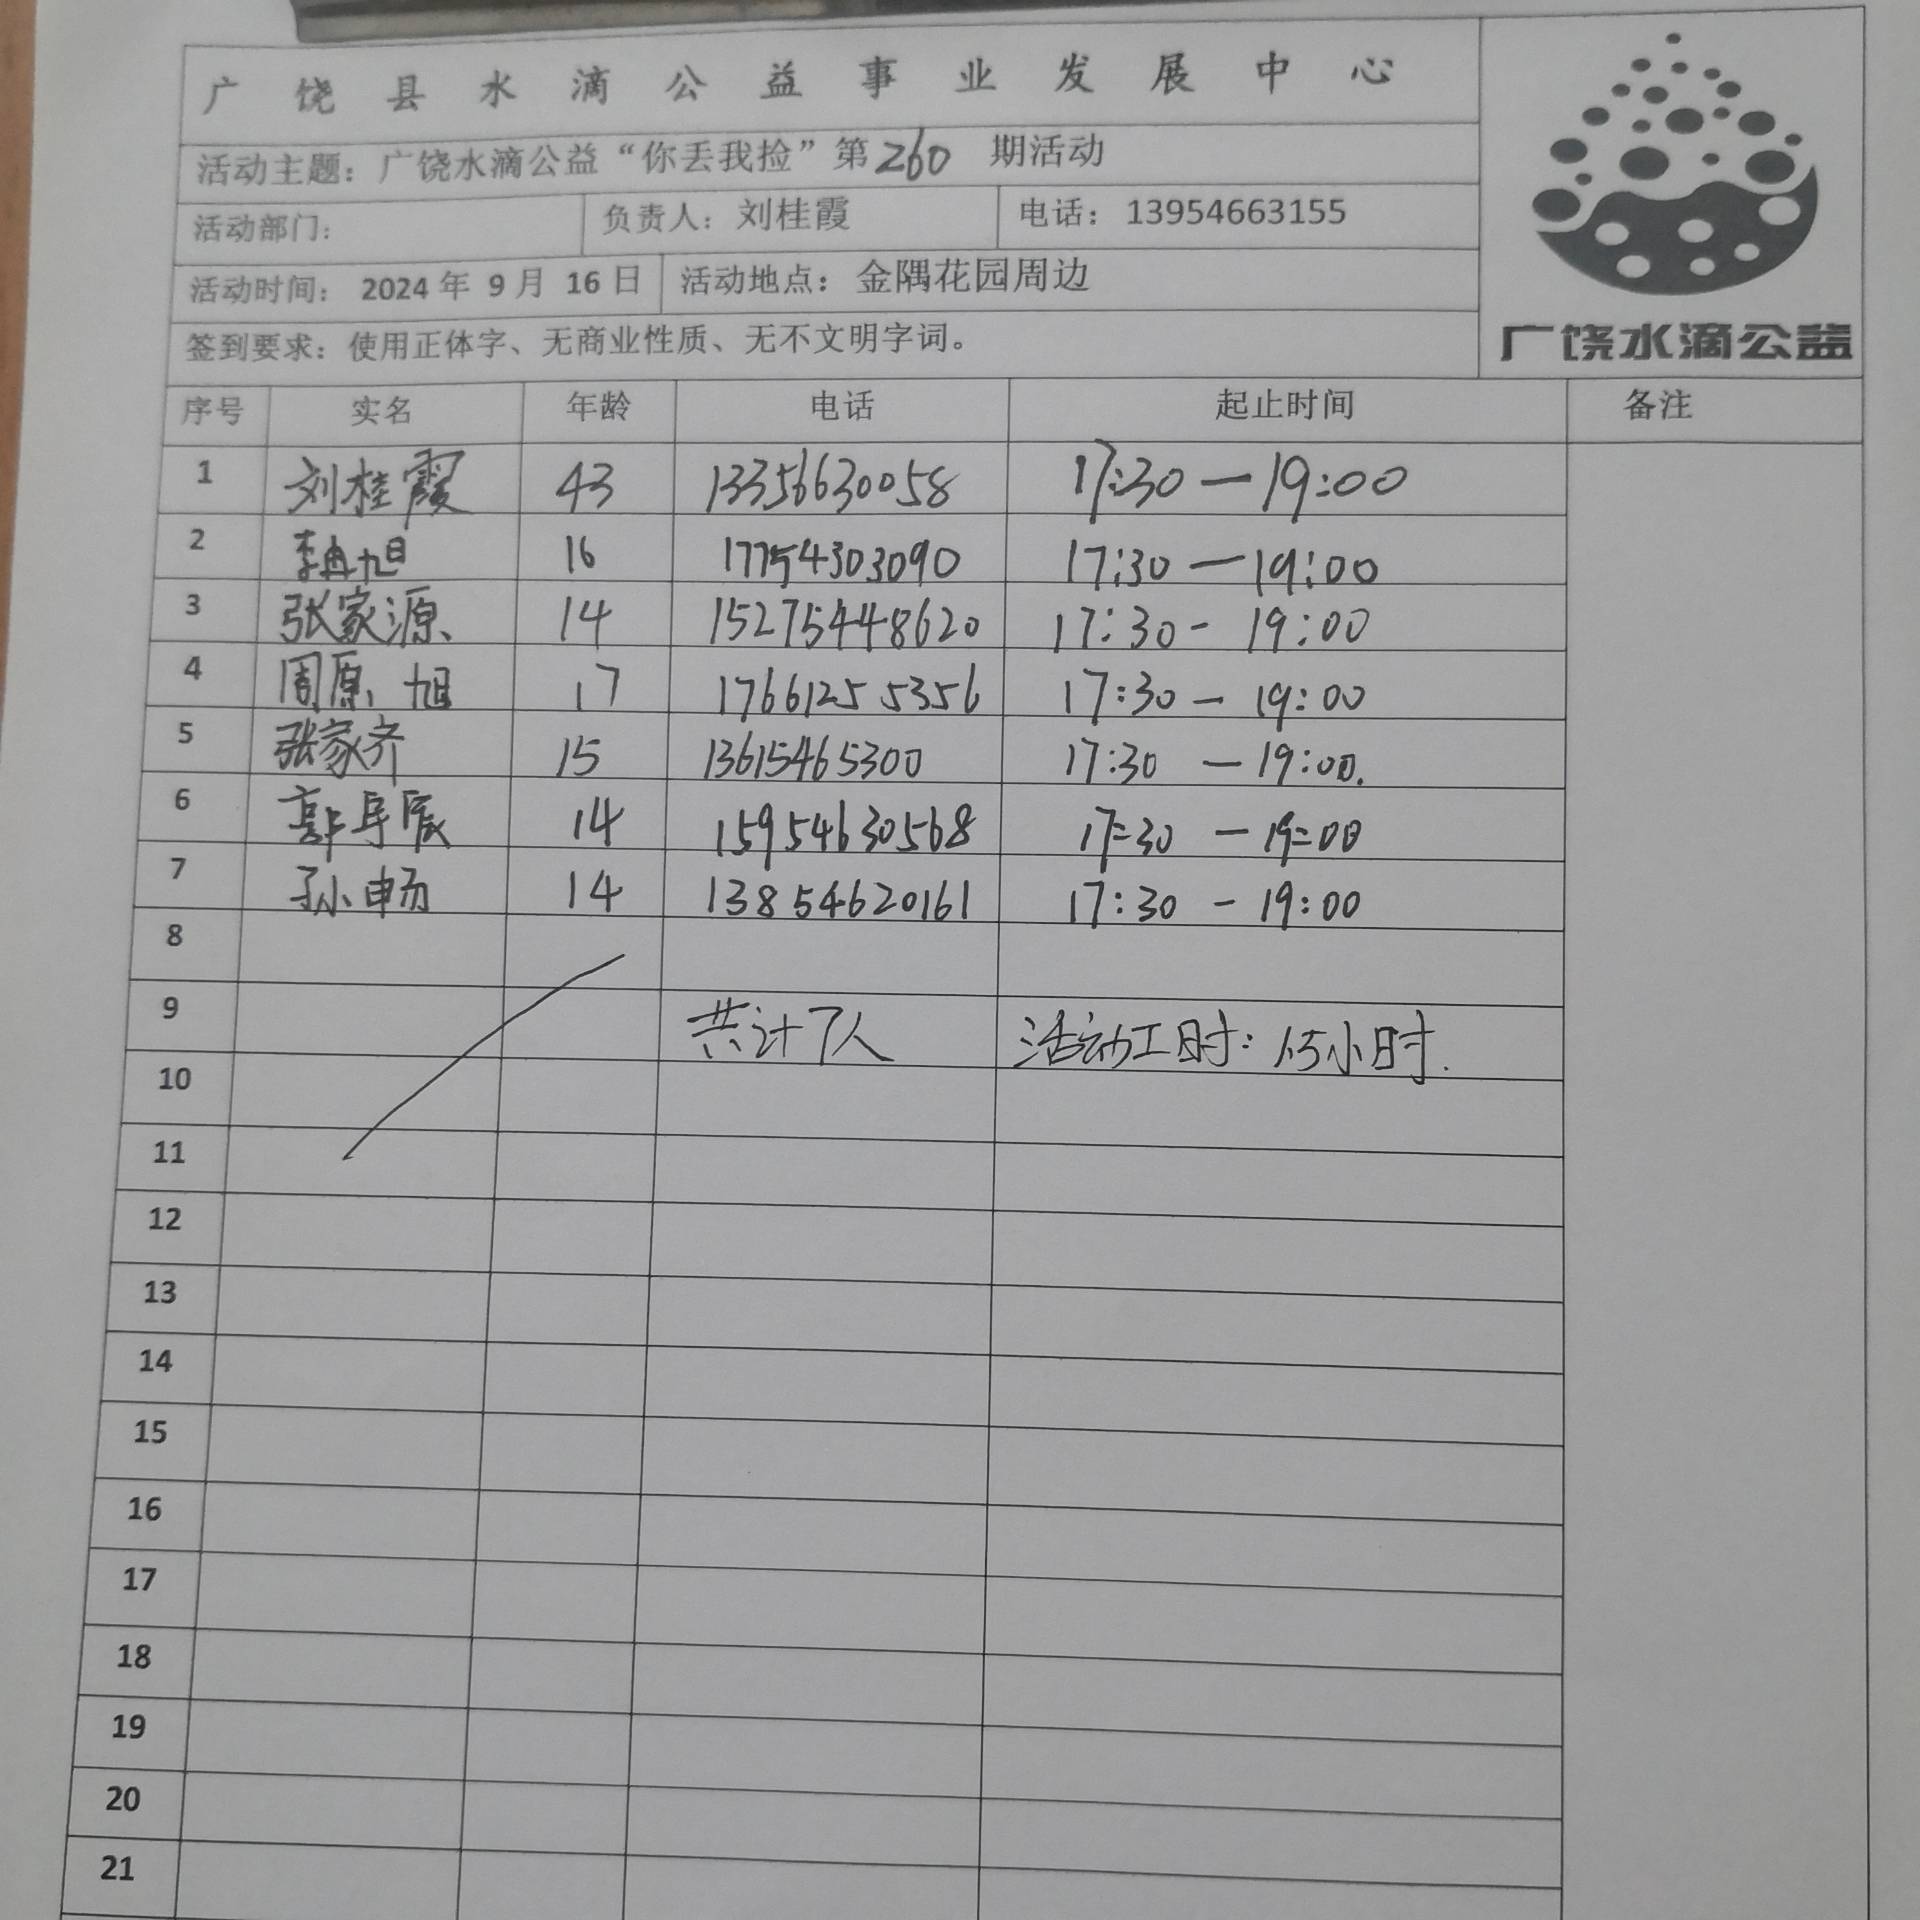 广饶县水滴公益事业发展中心
活动主题：广饶水滴公益“你丢我捡”第260 期活动
活动部门： 负责人：刘桂霞 电话：13954663155
活动时间： 2024 年 9 月 16 日 活动地点：金隅花园周边
签到要求：使用正体字、无商业性质、无不文明字词。
广饶水滴公益
序号 实名 年龄 电话 起止时间 备注
1 刘桂霞 43 13356630058 17:30—19:00
2 李冉旭 16 17754303090 17:30—19:00
3 张家源 14 15275448620 17:30- 19:00
4 周原旭 17 17661255356 17:30 — 19:00
5 张家齐 15 13615465300 17:30 — 19:00.
6 郭 14 15954630568 17:30 — 19:00
7 孙畅 14 13854620161 17:30 - 19:00
8
9 共计7人 活动工时：1.5小时.
10
11
12
13
14
15
16
17
18
19
20
21